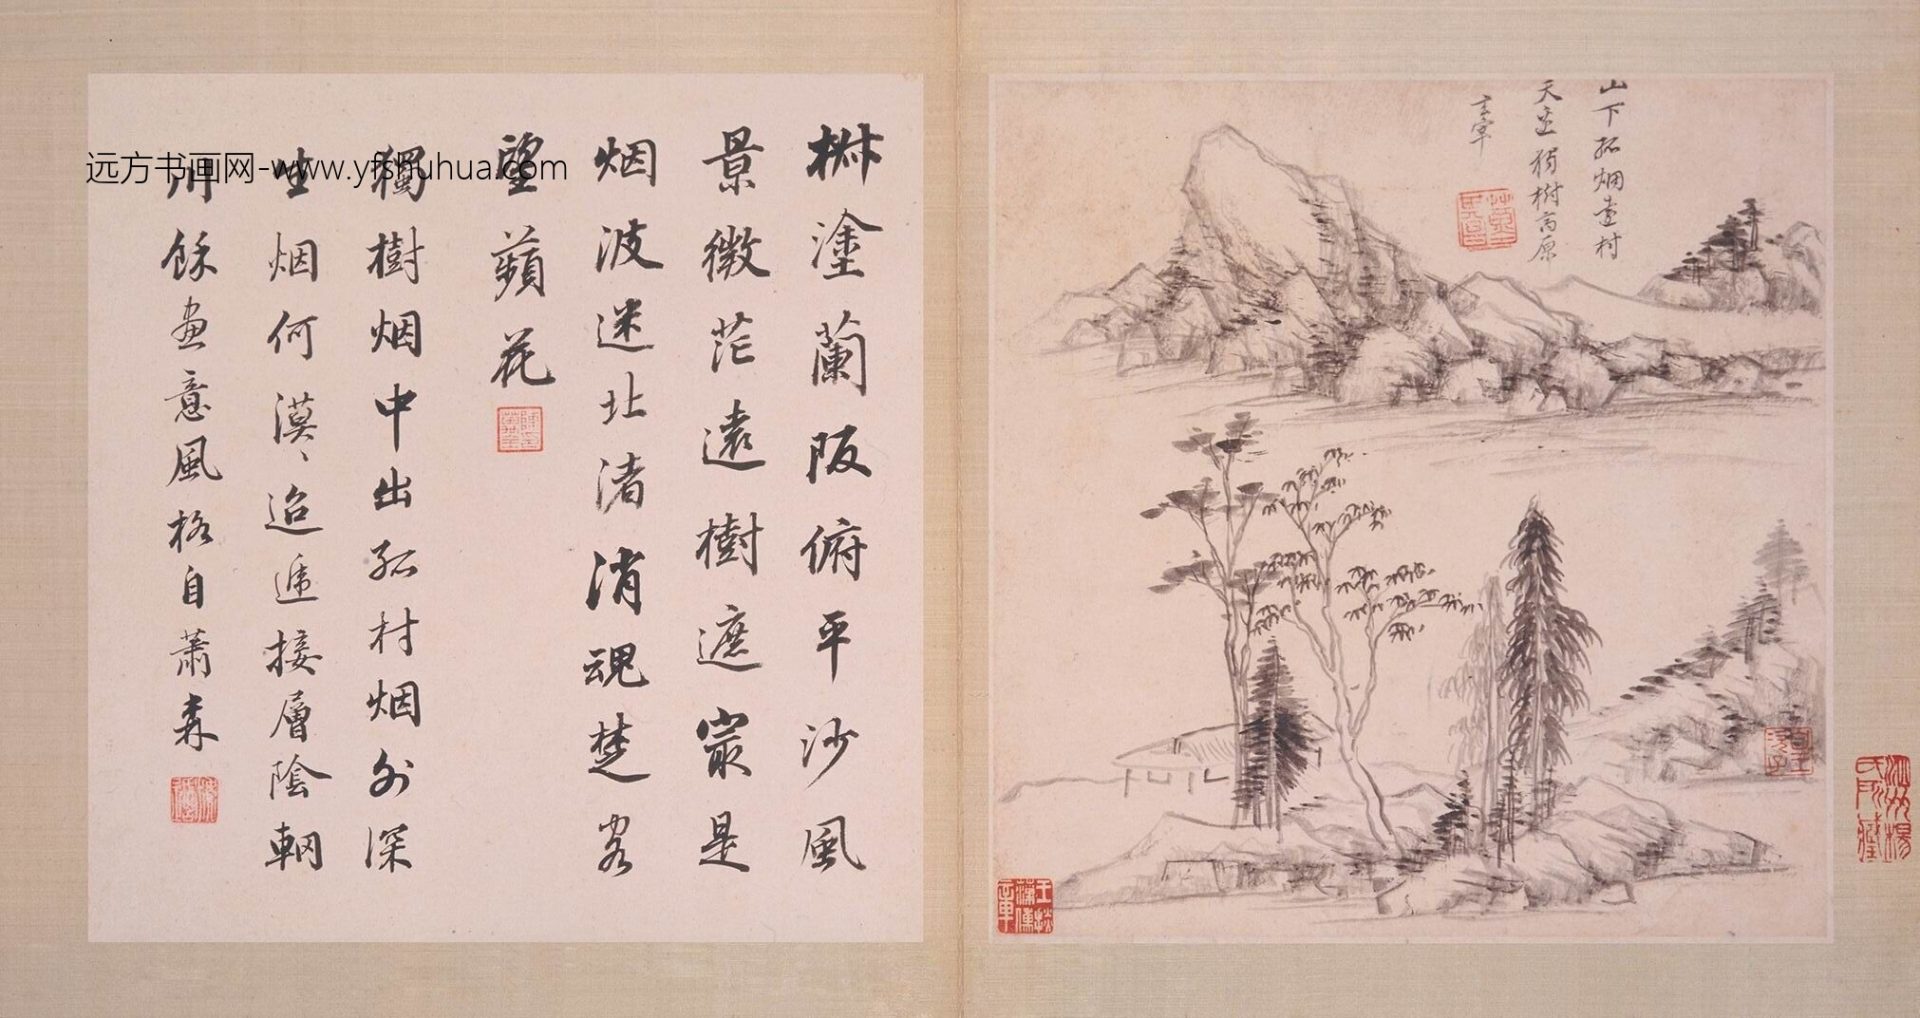 山下孤烟遠村
天邊獨樹高原
玄宰
椒塗蘭阪俯平沙風
景微茫遠樹遮㝡是
烟波迷北渚消魂楚客
望蘋花
獨樹烟中出孤村烟外深
生烟何漠〻迢遞接層陰輞
川餘畫意風格自蕭森
远方书画网-www.yfshuhua.com
泗州楊
氏所藏